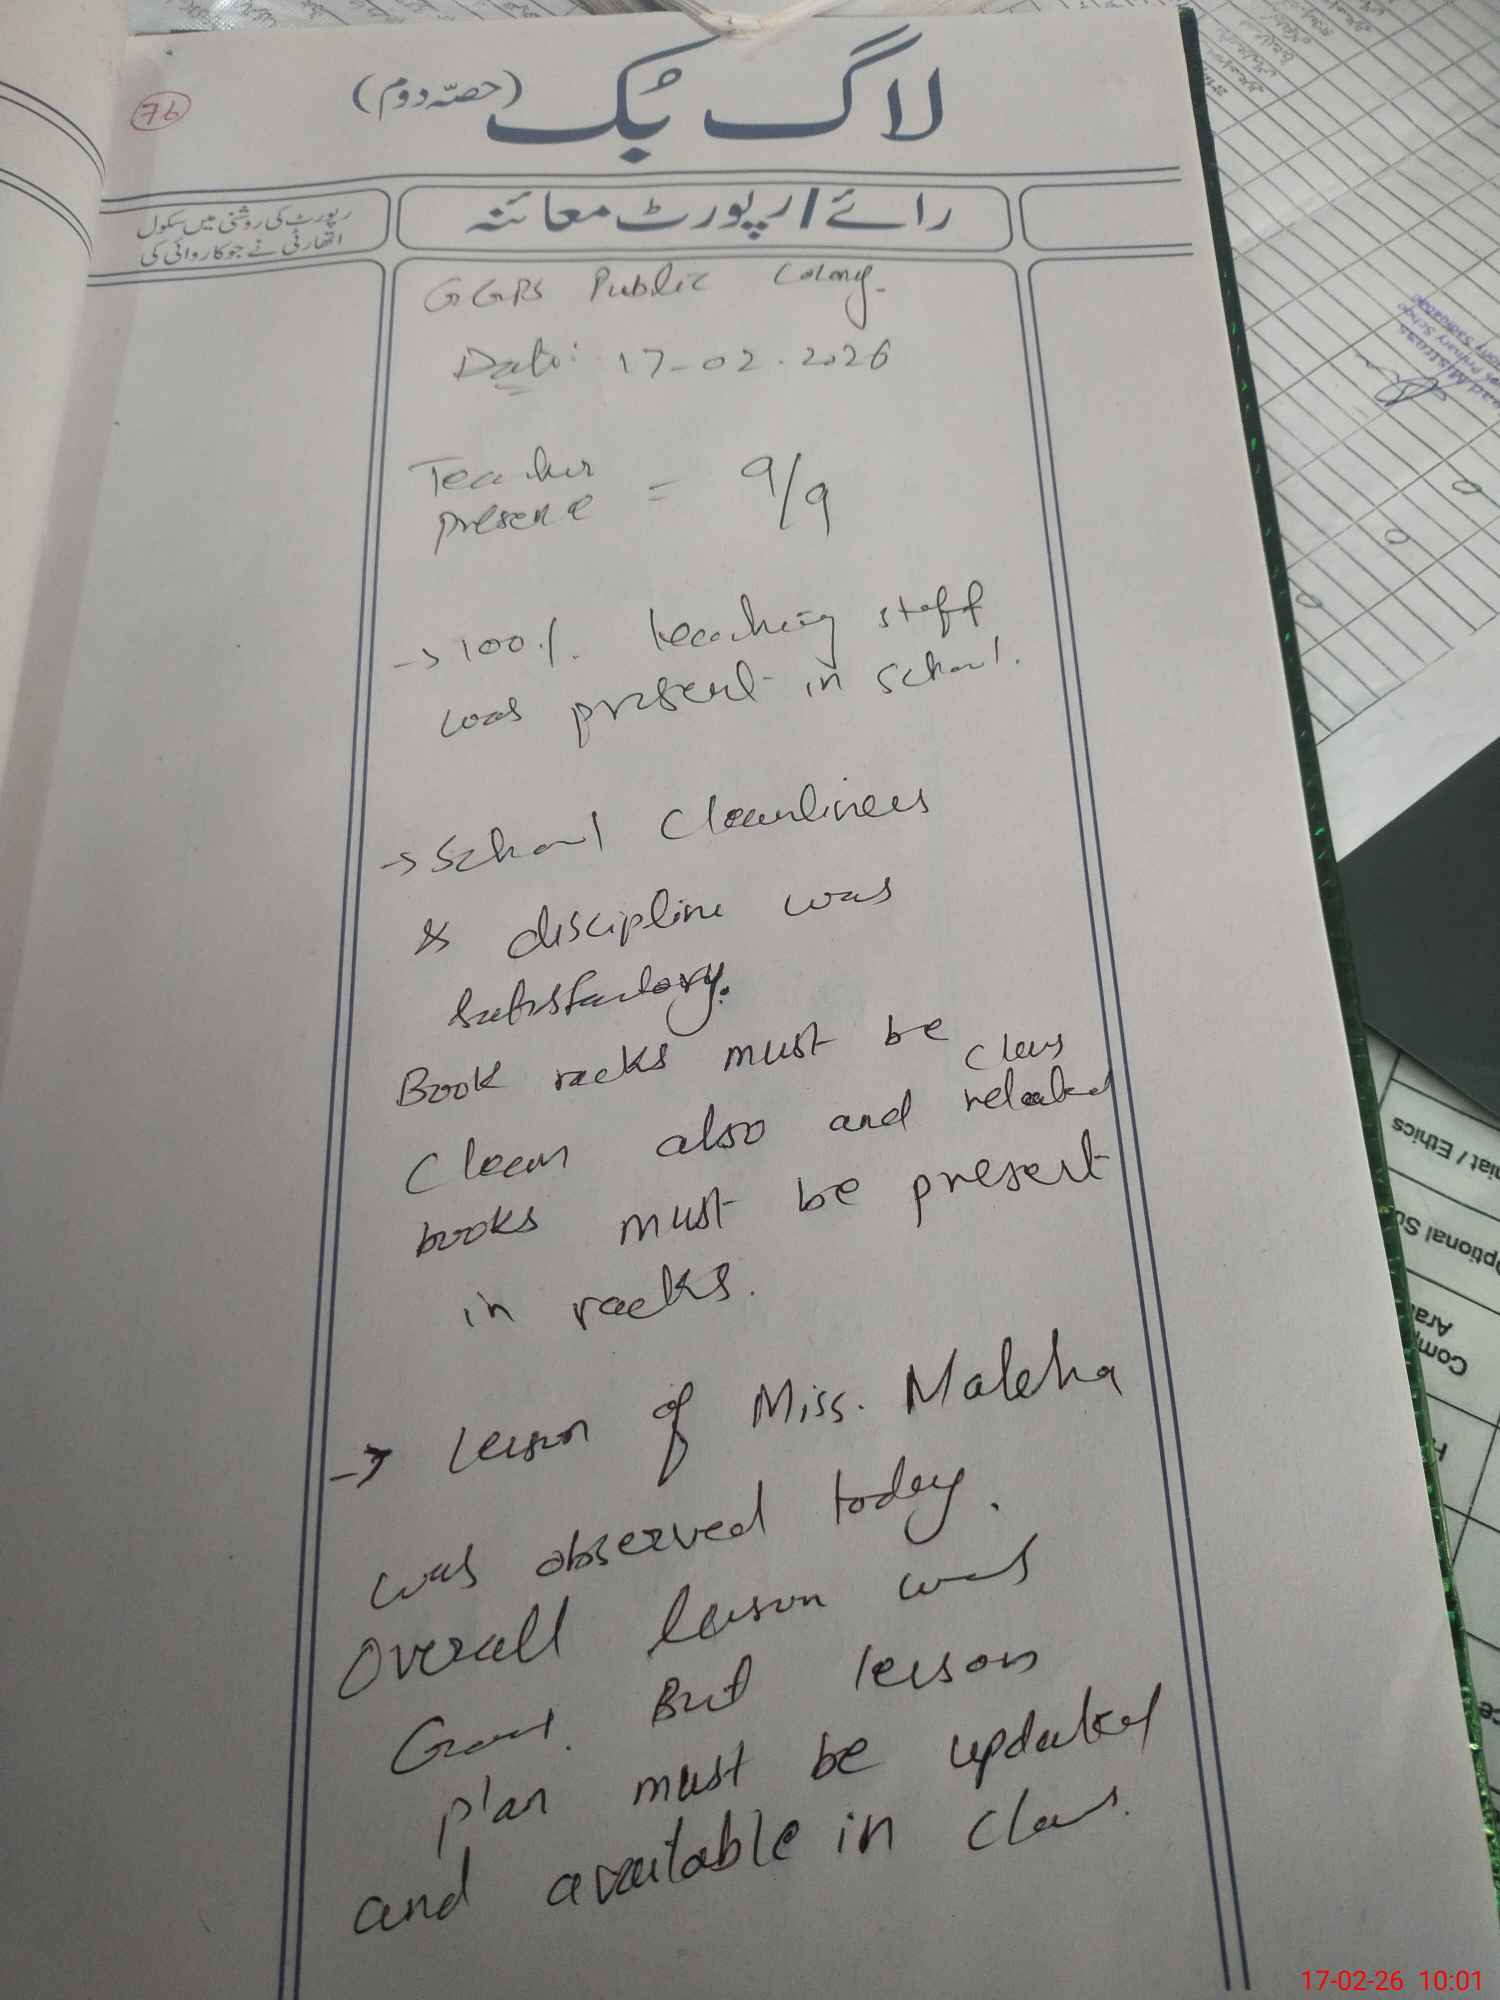 لاگ بُک (حصّہ دوم)
76
رائے / رپورٹ معائنہ
رپورٹ کی روشنی میں سکول
اتھارٹی نے جو کاروائی کی
GGPS Public Colony.
Date: 17-02-2026
Teacher
presence = 9/9
→ 100% teaching staff
was present in school.
→ School Cleanliness
& discipline was
satisfactory.
Book racks must be
Clean also and class related
books must be present
in racks.
→ lesson of Miss. Maleha
was observed today.
Overall lesson was
Good. But lesson
plan must be updated
and available in class.
iat / Ethics
ptional Su
Com
Ara
17-02-26 10:01